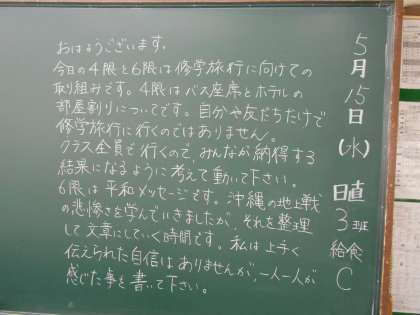 おはようございます。
今日の4限と6限は修学旅行に向けての
取り組みです。4限はバス座席とホテルの
部屋割りについてです。自分や友だちだけで
修学旅行に行くのではありません。
クラス全員で行くので、みんなが納得する
結果になるように考えて動いて下さい。
6限は平和メッセージです。沖縄の地上戦
の悲惨さを学んでいきましたが、それを整理
して文章にしていく時間です。私は上手く
伝えられた自信はありませんが、一人一人が
感じた事を書いて下さい。
5月15日(水)
日直
3班
給食
C